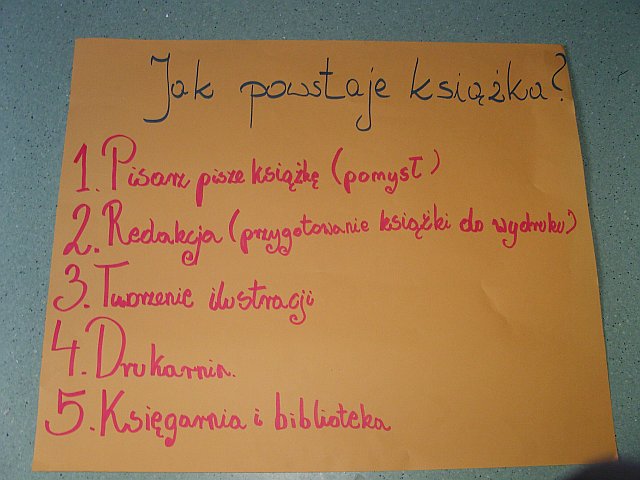 Jak powstaje książka?
1. Pisarz pisze książkę (pomysł)
2. Redakcja (przygotowanie książki do wydruku)
3. Tworzenie ilustracji
4. Drukarnia.
5. Księgarnia i biblioteka